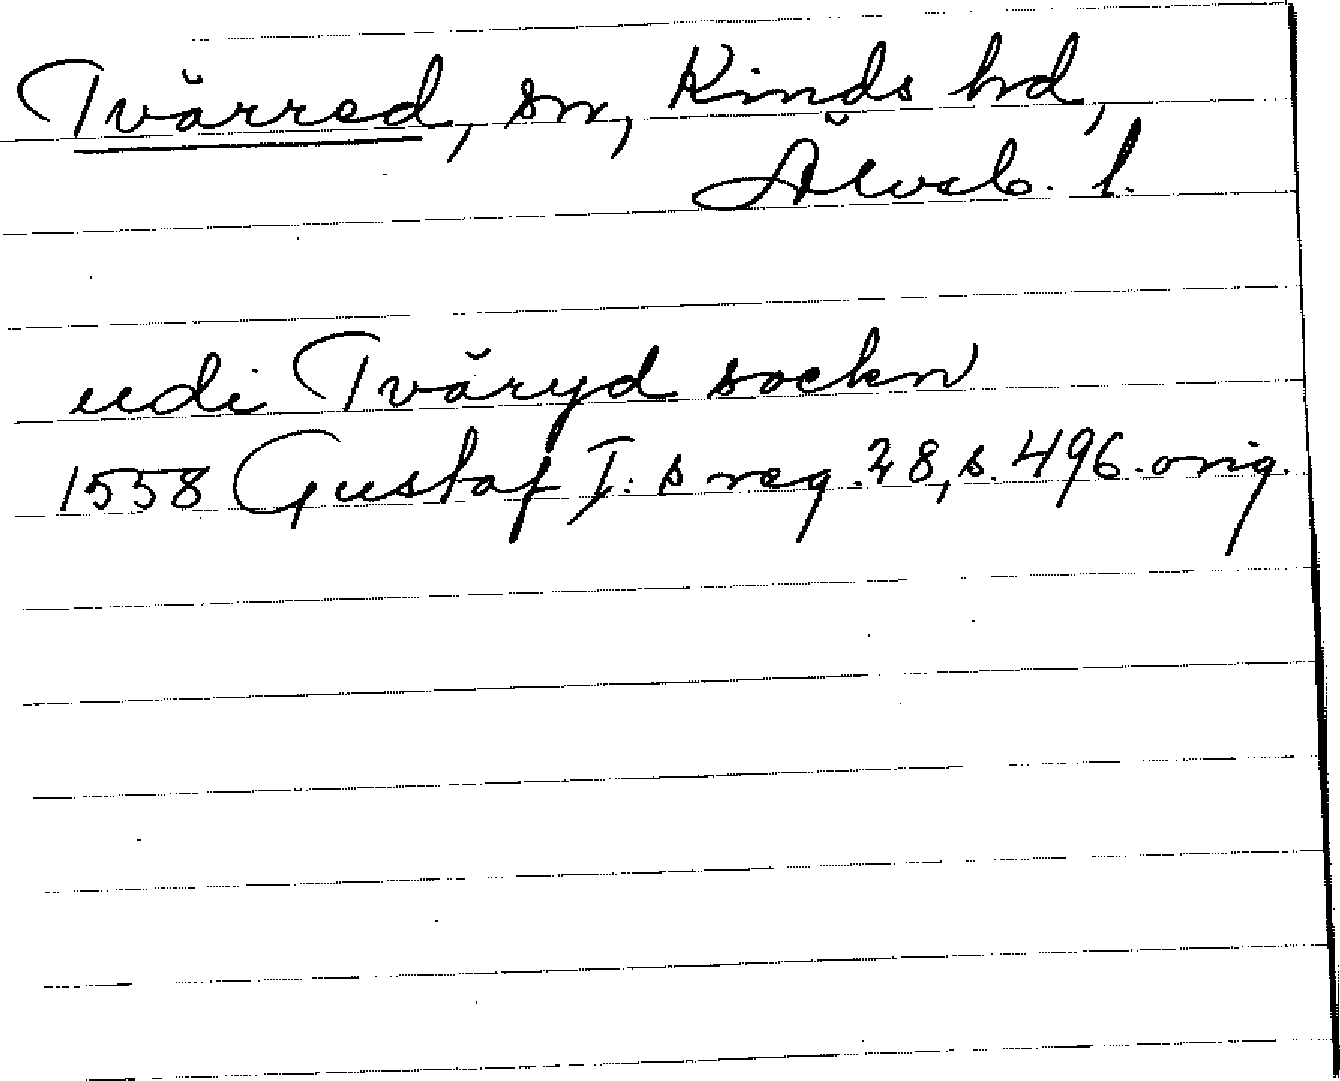 Tvärred, sn, Kinds hd,
Älvsb. l.
udi Tväryd sockn
1558 Gustaf I:s reg. 28, s. 496. orig.